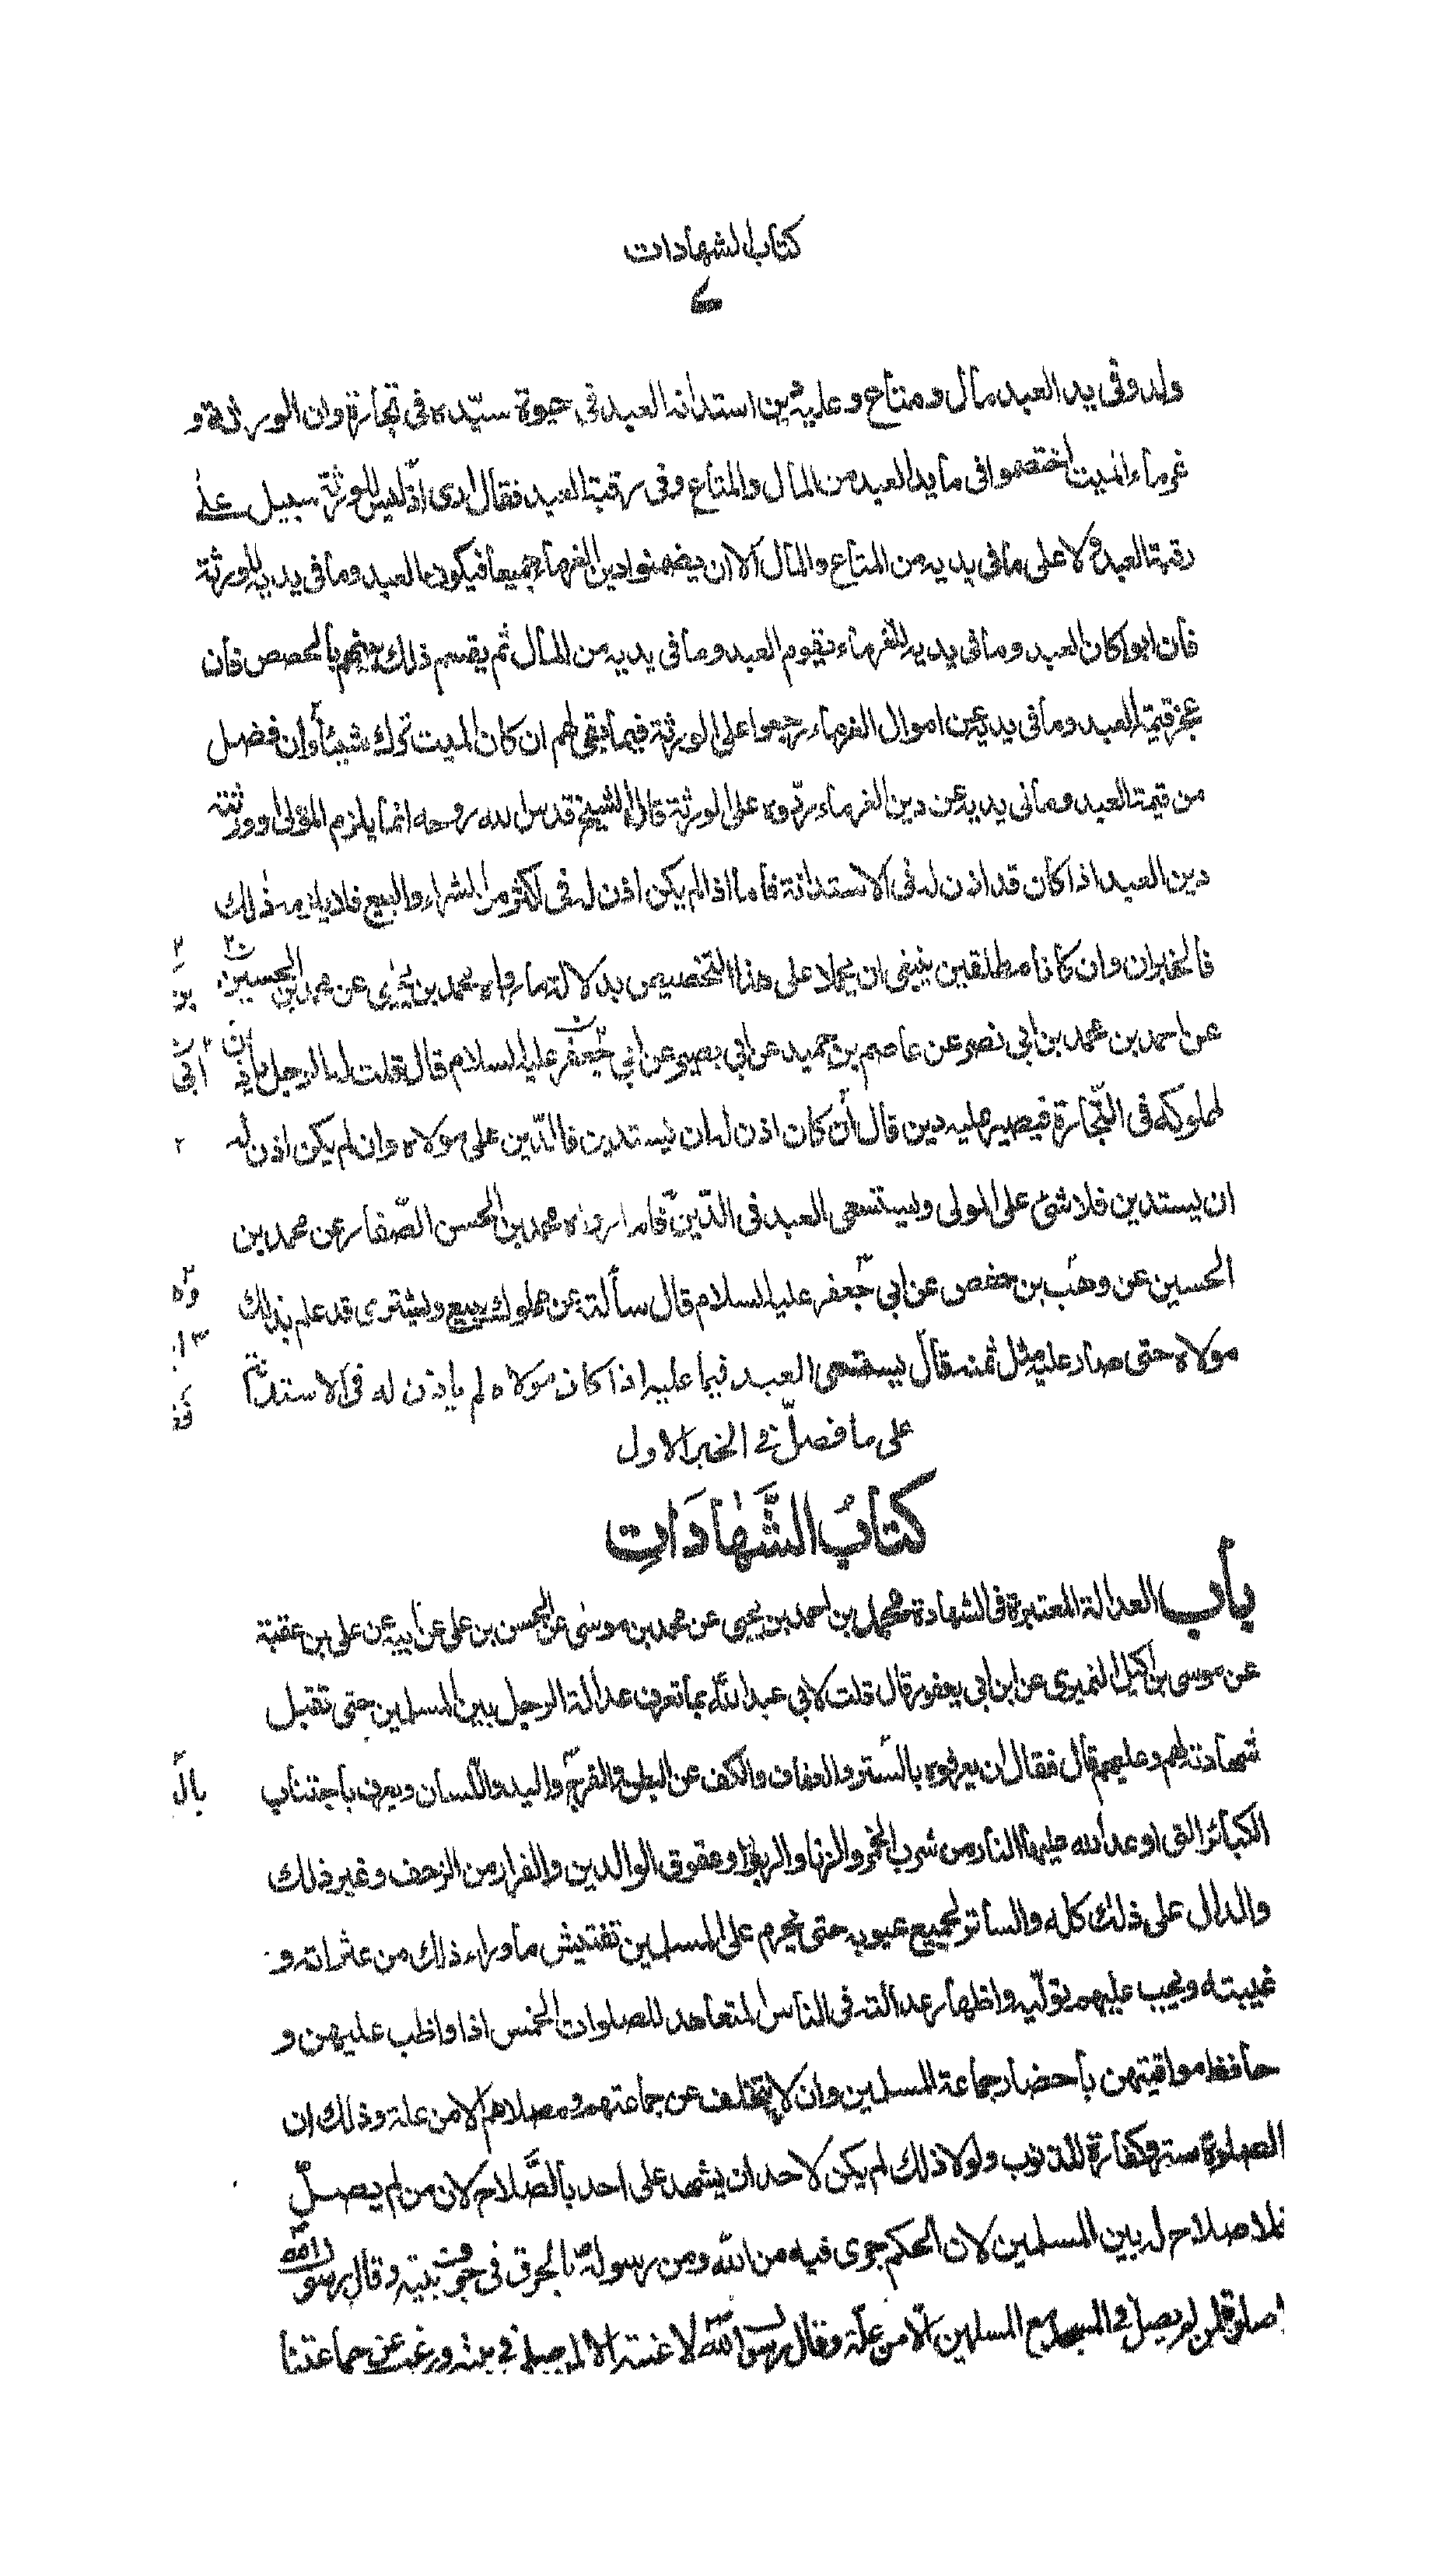 كتاب الشهادات
٧
ولد وفى يد العبد مال ومتاع وعليه دين استدانه العبد فى حيوة سيّده فى تجارة وان الورثة و
غرماء الميت اختصموا فى ما يد العبد من المال والمتاع وفى رقبة العبد فقال ارى انّ ليس للورثة سبيل على
رقبة العبد ولا على ما فى يديه من المتاع والمال الا ان يضمنوا دين الغرماء جميعا فيكون العبد وما فى يديه للورثة
فان ابوا كان العبد وما فى يديه للغرماء يقوم العبد وما فى يديه من المال ثم يقسم ذلك بينهم بالحصص فان
عجز قيمة العبد وما فى يديه عن اموال الغرماء رجعوا على الورثة فيما بقى لهم ان كان الميت ترك شيئاً وان فضل
من قيمة العبد وما فى يديه عن دين الغرماء ردّوه على الورثة قال الشيخ قدس الله روحه انما يلزم المولى او ورثته
دين العبد اذا كان قد اذن له فى الاستدانة فاما اذا لم يكن اذن له فى اكثر من الشراء والبيع فلا يلزمه ذلك
فالخبران وان كانا مطلقين ينبغى ان يحملا على هذا التخصيص بدلالة ما رواه محمد بن يحيى عن محمد بن الحسين
عن احمد بن محمد بن ابى نصر عن عاصم بن حميد عن ابى بصير عن ابى جعفر عليه السلام قال قلت له الرجل ياذن
لمملوكه فى التّجارة فيصير عليه دين قال ان كان اذن له ان يستدين فالدّين على مولاه وان لم يكن اذن له
ان يستدين فلا شئ على المولى ويستسعى العبد فى الدّين فاما رواه محمد بن الحسن الصّفار عن محمد بن
الحسين عن وهب بن حفص عن ابى جعفر عليه السلام قال سألته عن مملوك يبيع ويشترى قد علم بذلك
مولاه حتى صار عليه مثل ثمنه قال يستسعى العبد فيما عليه اذا كان مولاه لم ياذن له فى الاستدانة
على ما فصلّ فى الخبر الاول
كتاب الشَّهادَاتِ
باب العدالة المعتبرة فى الشهادة محمد بن احمد بن يحيى عن محمد بن موسى عن الحسن بن على عن ابيه عن على بن عقبة
عن موسى بن اكيل النميرى عن ابن ابى يعفور قال قلت لابى عبد الله بما تعرف عدالة الرجل بين المسلمين حتى تقبل
شهادته لهم وعليهم قال فقال ان يعرفوه بالسّتر والعفاف والكف عن البطن والفرج واليد واللّسان ويعرف باجتناب
الكبائر التى اوعد الله عليها النار من شرب الخمر والزنا والربوا وعقوق الوالدين والفرار من الزحف وغير ذلك
والدال على ذلك كله والساتر لجميع عيوبه حتى يحرم على المسلمين تفتيش ما وراء ذلك من عثراته و
غيبته ويجب عليهم توليه واظهار عدالته فى الناس المتعاهد للصلوات الخمس اذا واظب عليهن و
حافظ مواقيتهن باحضار جماعة المسلمين وان لا يتخلف عن جماعتهم ومصلاهم الا من علة وذلك ان
الصلوة ستر وكفارة للذنوب ولولا ذلك لم يكن لاحد ان يشهد على احد بالصَّلاح لان من لم يصلّ
فلا صلاح له بين المسلمين لان الحكم جرى فيه من الله ومن رسوله بالحرق فى جوف بيته وقال رسول الله
لا صلوة لمن لم يصل فى المسجد مع المسلمين الّا من علّة وقال رسول الله لا غيبة الا لمن صلى فى بيته ورغب عن جماعتنا